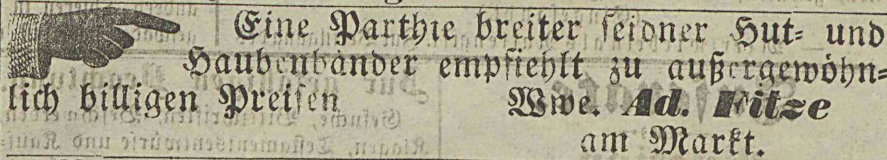 Eine Parthie breiter seidner Hut- und
Haubenbänder empfiehlt zu außergewöhn-
lich billigen Preisen Wwe. Ad. Fitze
am Markt.